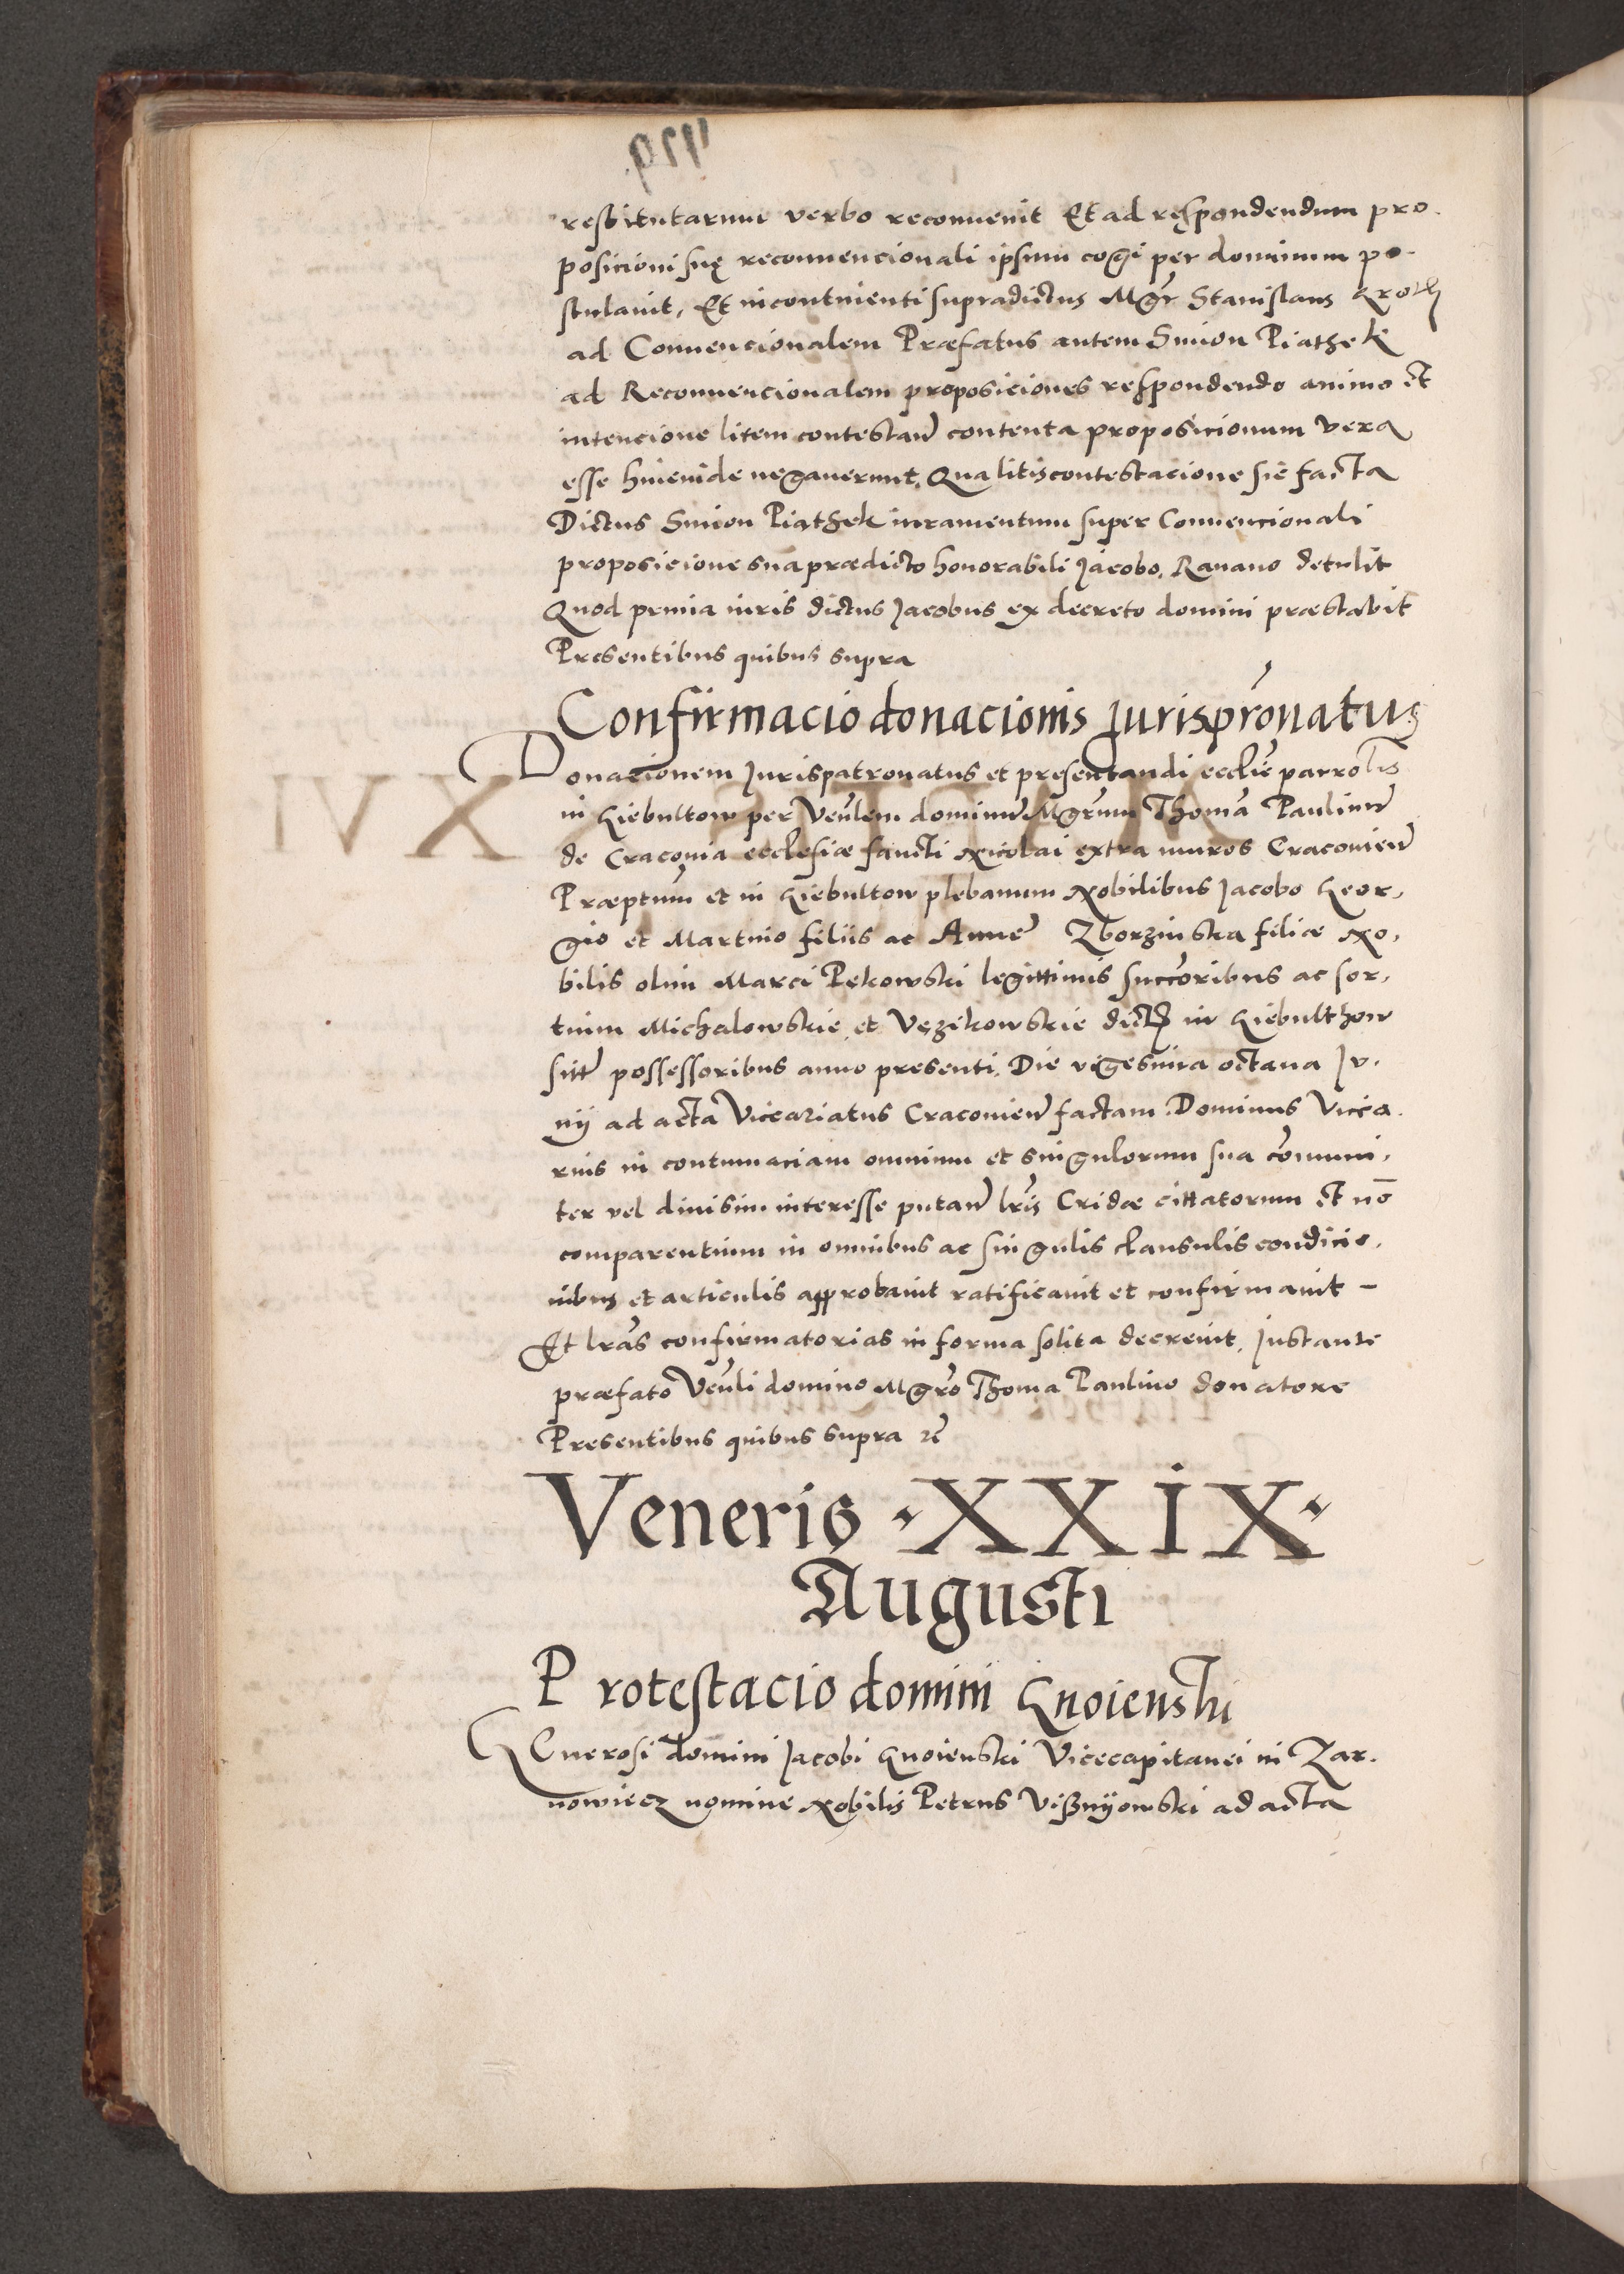 restituturum verbo reconuenit Et ad respondendum pro.
posicioni suę reconuencionali ipsum cogi per dominum po.
stulauit, Et incontinenti supradictus Mgr̃ Stanislaus Groth
ad Conuencionalem Præfatus autem Simon Piathek
ad Reconuencionalem proposiciones respondendo animo et
intencione litem contestañ contenta proposicionum vera
esse hincinde negauerunt. Qua litiscontestacione sic facta
Dictus Simon Piathek iuramentum super Conuencionali
proposicione sua prædicto honorabili Jacobo Rauano detulit
Quod prima iuris dictus Jacobus ex decreto domini præstabit
Presentibus quibus supra
Confirmacio donacionis Jurisprõnatus
Donacionem Jurispatronatus et presentandi ecclie parrotis
in Giebultow per Venlem dominũ Mgrum Thomã Paulinũ
de Craconia ecclesiæ sancti Nicolai extra muros Cracouień
Præptum et in Giebultow plebanum Nobilibus Jacobo Geor,
gio et Martino filiis ac Anne Zborzinska filiæ No,
bilis olim Marci Pękowski legittimis succoribus ac sor,
tium Michalowskie et Vęzikowskie dict in Giebulthow
sitt possessoribus anno presenti. Die vigesima octaua Ju.
nij ad acta Vicariatus Cracouień factam. Dominus Vica.
rius in contumaciam omnium et singulorum sua comuni,
ter vel diuisim interesse putań lris Cridæ cittatorum et nõ
comparentium in omnibus ac singulis clausulis condicio,
nibus et articulis approbauit ratificauit et confirmauit –
Et lras confirmatorias in forma solita decreuit, Instante
præfato Venli domino Mgro Thoma Paulino donatore
Presentibus quibus supra rc̃
Veneris · XXIX ·
Augusti
Protestacio domini Gnoienski
GEnerosi domini Jacobi Gnoienski Vicecapitanei in Zar.
nowiecz nomine Nobilis Petrus Vißnijowski ad acta